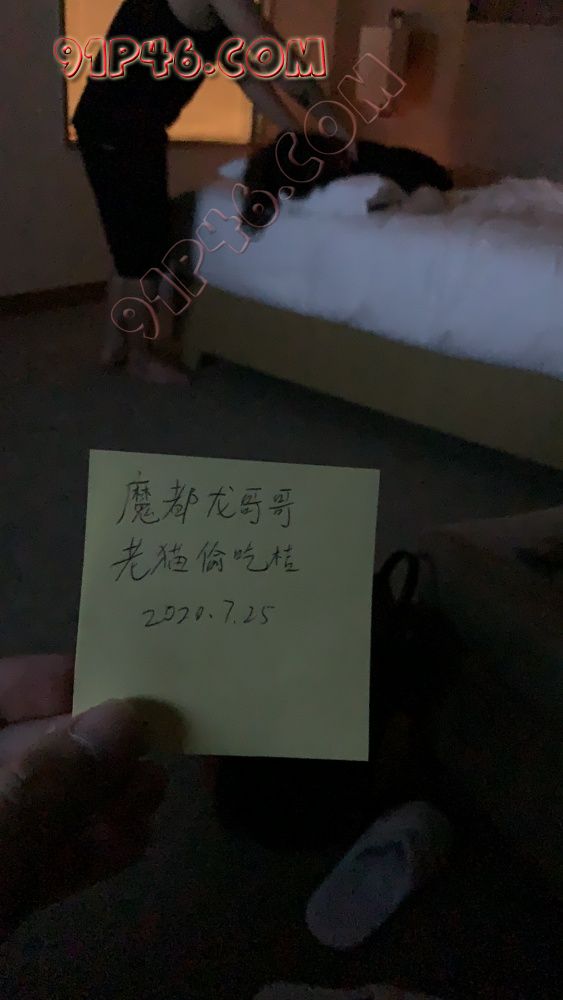 91P46.COM
91P46.COM
魔都龙哥哥
老猫偷吃桔
2020.7.25